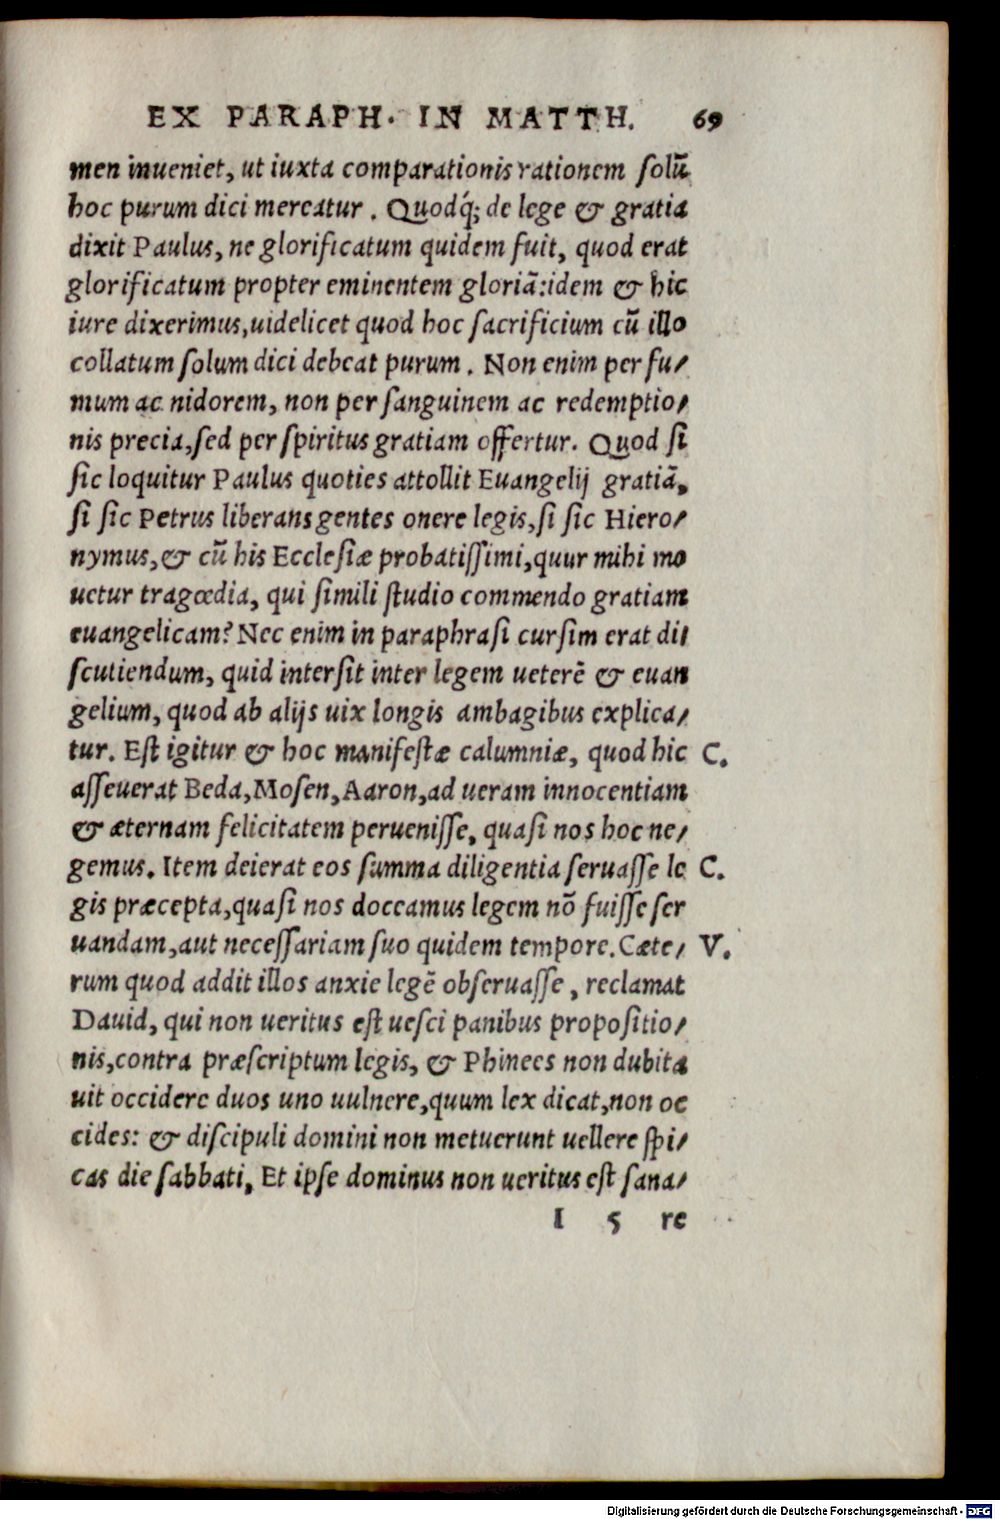 EX PARAPH. IN MATTH. 69
men inueniet, ut iuxta comparationis rationem solũ
hoc purum dici mereatur. Quodq́; de lege & gratia
dixit Paulus, ne glorificatum quidem fuit, quod erat
glorificatum propter eminentem gloriã:idem & hic
iure dixerimus,uidelicet quod hoc sacrificium cũ illo
collatum solum dici debeat purum. Non enim per fu/
mum ac nidorem, non per sanguinem ac redemptio/
nis precia,sed per spiritus gratiam offertur. Quod si
sic loquitur Paulus quoties attollit Euangelij gratiã,
si sic Petrus liberans gentes onere legis,si sic Hiero/
nymus,& cũ his Ecclesiæ probatissimi,quur mihi mo
uetur tragœdia, qui simili studio commendo gratiam
euangelicam? Nec enim in paraphrasi cursim erat di/
scutiendum, quid intersit inter legem ueterẽ & euan
gelium, quod ab alijs uix longis ambagibus explica/
tur. Est igitur & hoc manifestæ calumniæ, quod hic C.
asseuerat Beda,Mosen,Aaron,ad ueram innocentiam
& æternam felicitatem peruenisse, quasi nos hoc ne/
gemus. Item deierat eos summa diligentia seruasse le C.
gis præcepta,quasi nos doceamus legem nõ fuisse ser
uandam,aut necessariam suo quidem tempore.Cæte/ V.
rum quod addit illos anxie legẽ obseruasse, reclamat
Dauid, qui non ueritus est uesci panibus propositio/
nis,contra præscriptum legis, & Phinees non dubita
uit occidere duos uno uulnere,quum lex dicat,non oc
cides: & discipuli domini non metuerunt uellere spi/
cas die sabbati, Et ipse dominus non ueritus est sana/
I 5 re
Digitalisierung gefördert durch die Deutsche Forschungsgemeinschaft - DFG